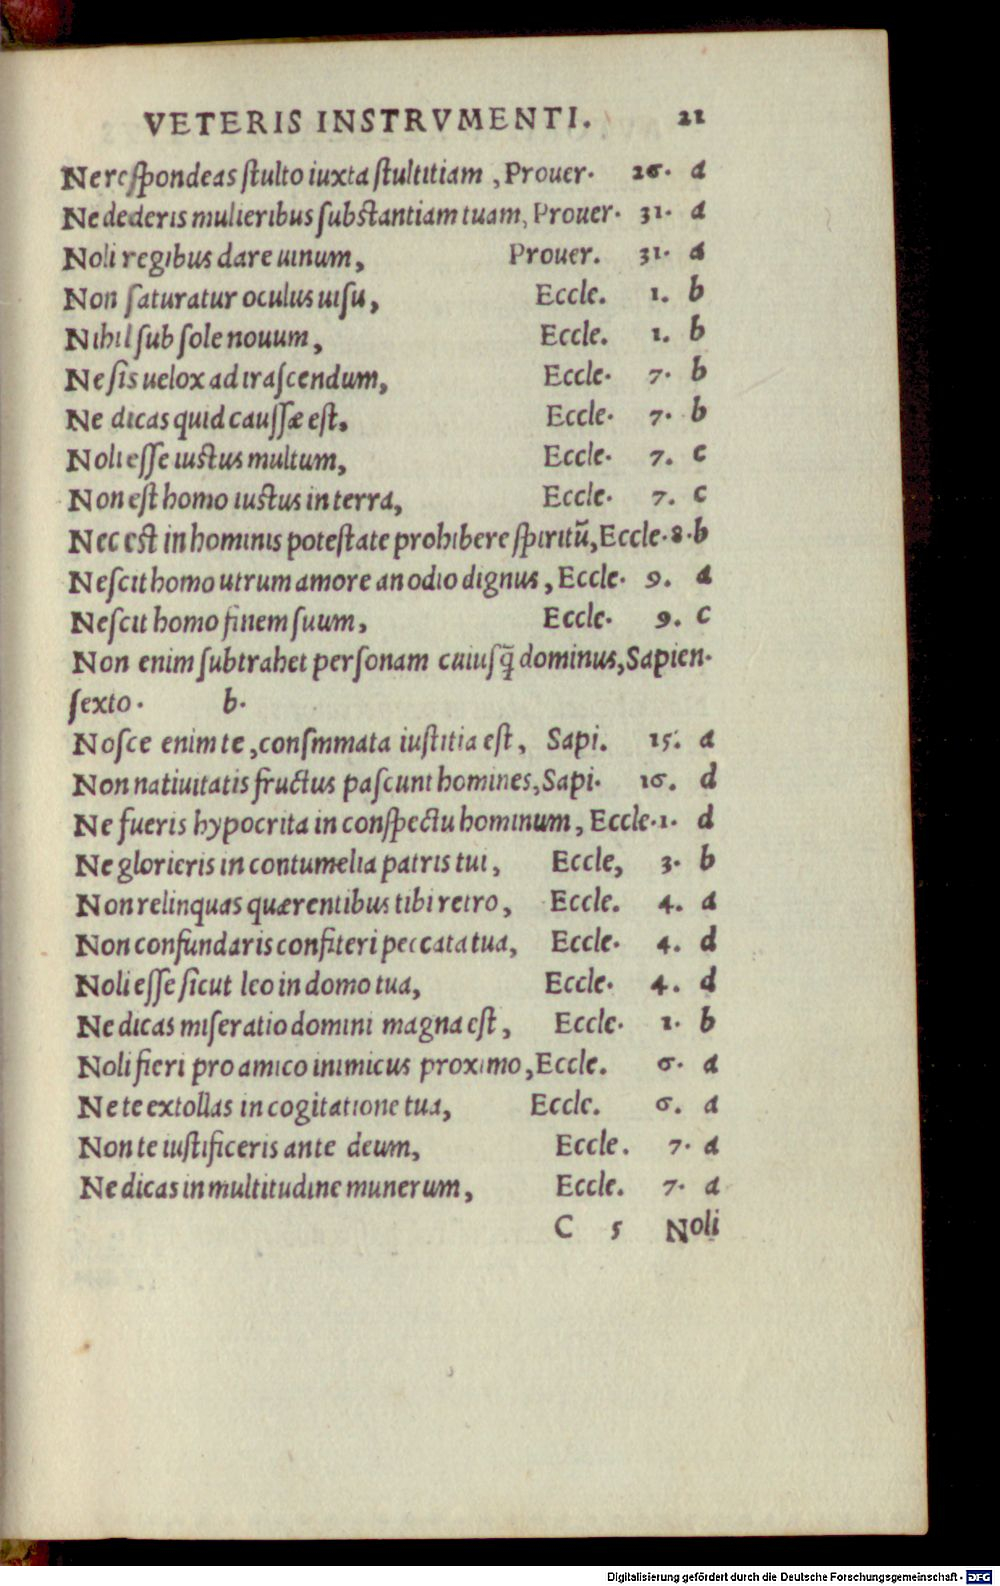 VETERIS INSTRVMENTI. 21
Ne respondeas stulto iuxta stultitiam , Prouer. 26. a
Ne dederis mulieribus substantiam tuam, Prouer. 31. a
Noli regibus dare uinum, Prouer. 31. a
Non saturatur oculus uisu, Eccle. 1. b
Nihil sub sole nouum, Eccle. 1. b
Ne sis uelox ad irascendum, Eccle. 7. b
Ne dicas quid caussæ est. Eccle. 7. b
Noli esse iustus multum, Eccle. 7. c
Non est homo iustus in terra, Eccle. 7. c
Nec est in hominis potestate prohibere spiritũ, Eccle. 8. b
Nescit homo utrum amore an odio dignus , Eccle. 9. a
Nescit homo finem suum, Eccle. 9. c
Non enim subtrahet personam cuiusq̃ dominus, Sapien.
sexto . b.
Nosce enim te , consmmata iustitia est, Sapi. 15. a
Non natiuitatis fructus pascunt homines, Sapi. 16. d
Ne fueris hypocrita in conspectu hominum , Eccle. 1. d
Ne glorieris in contumelia patris tui, Eccle, 3. b
Non relinquas quærentibus tibi retro, Eccle. 4. a
Non confundaris confiteri peccata tua, Eccle. 4. d
Noli esse sicut leo in domo tua, Eccle. 4. d
Ne dicas miseratio domini magna est, Eccle. 1. b
Noli fieri pro amico inimicus proximo, Eccle. 6. a
Ne te extollas in cogitatione tua, Eccle. 6. a
Non te iustificeris ante deum, Eccle. 7. a
Ne dicas in multitudine munerum, Eccle. 7. a
C 5 Noli
Digitalisierung gefördert durch die Deutsche Forschungsgemeinschaft - DFG